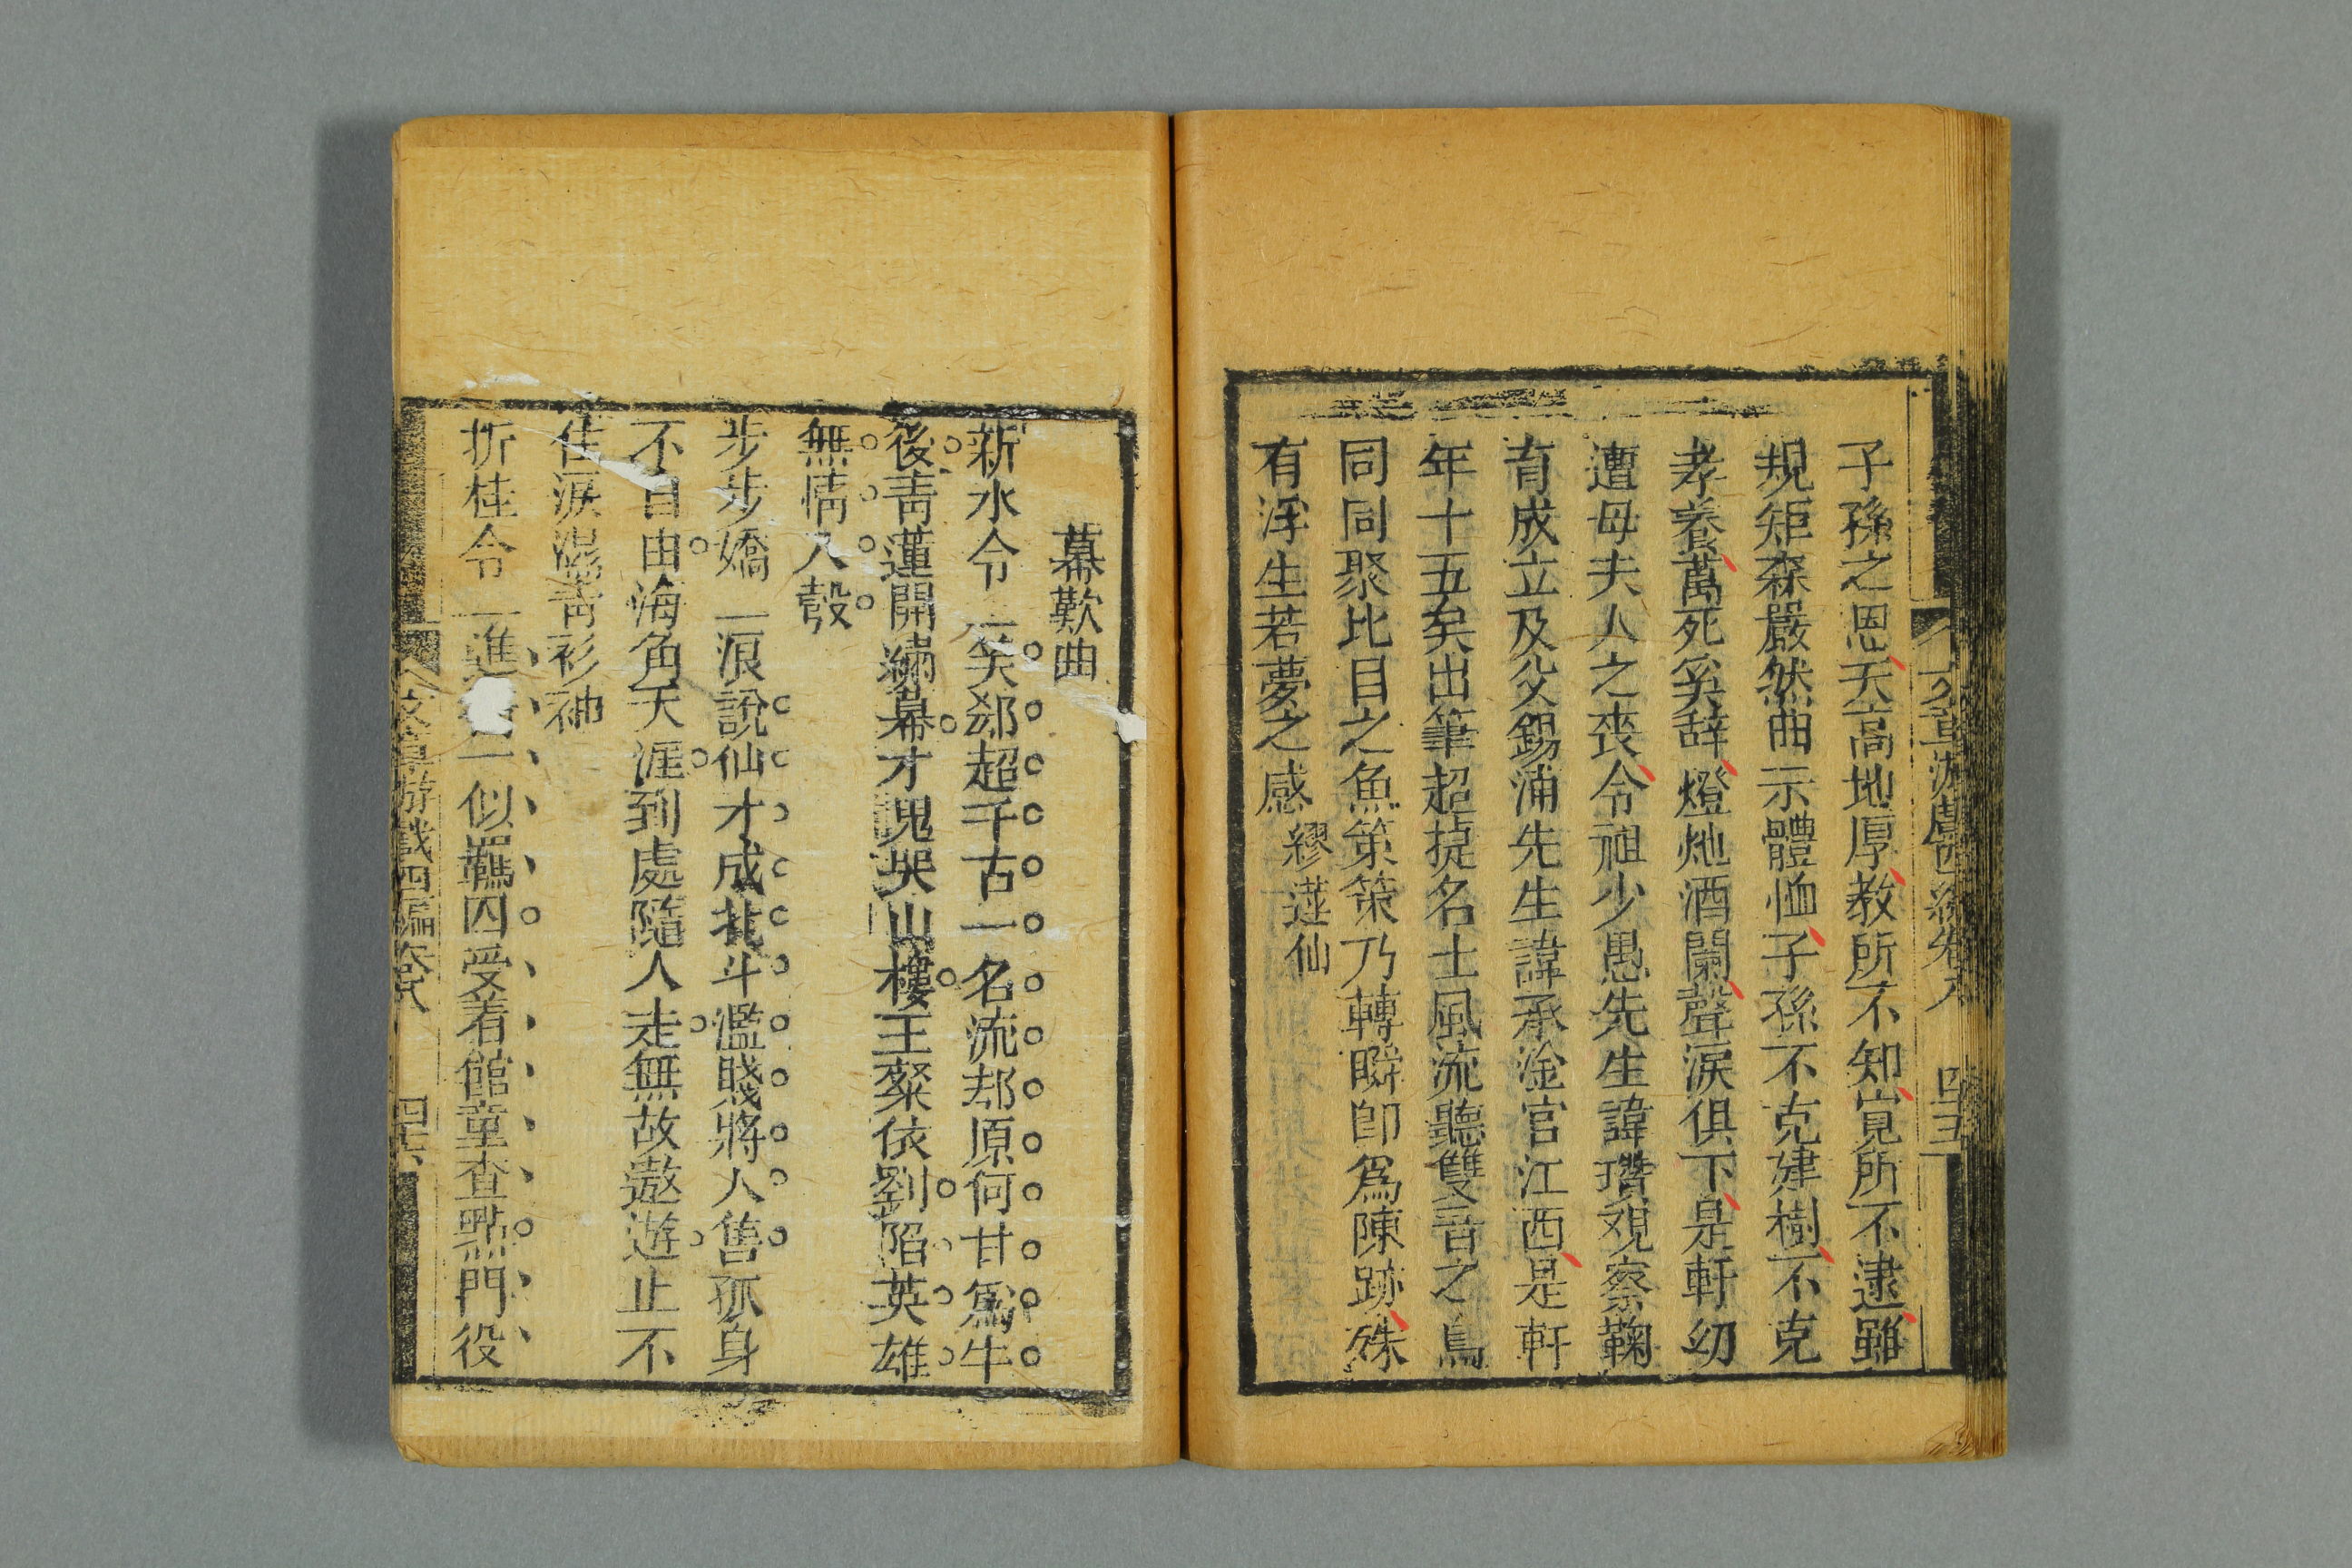 子孫之恩天高地厚教所不知寛所不逮雖
規矩森嚴然曲示體恤子孫不克建樹不克
孝養萬死奚辞燈灺酒闌聲淚俱下是軒幼
遭母夫人之喪令祖少愚先生諱瓚觀察鞠
育成立及父錫浦先生諱承淦官江西是軒
年十五矣出筆超㨗名士風流聽雙音之鳥
同同聚比目之魚策策乃轉瞬即爲陳跡殊
有浮生若夢之感
繆蓮仙
文章游戲四編卷八 四五
幕歎曲
新水令 一笑郄超千古一名流却原何甘爲牛
後青蓮開繡幕才鬼哭山樓王粲依劉陷英雄
無情入彀
步步嬌 一浪說仙才成北斗濫賤將人售孤身
不自由海角天涯到處隨人走無故遨遊止不
住淚濕青衫袖
折桂令 一進一似羈囚受着館童查點門役
文章游戲四編卷八 四六